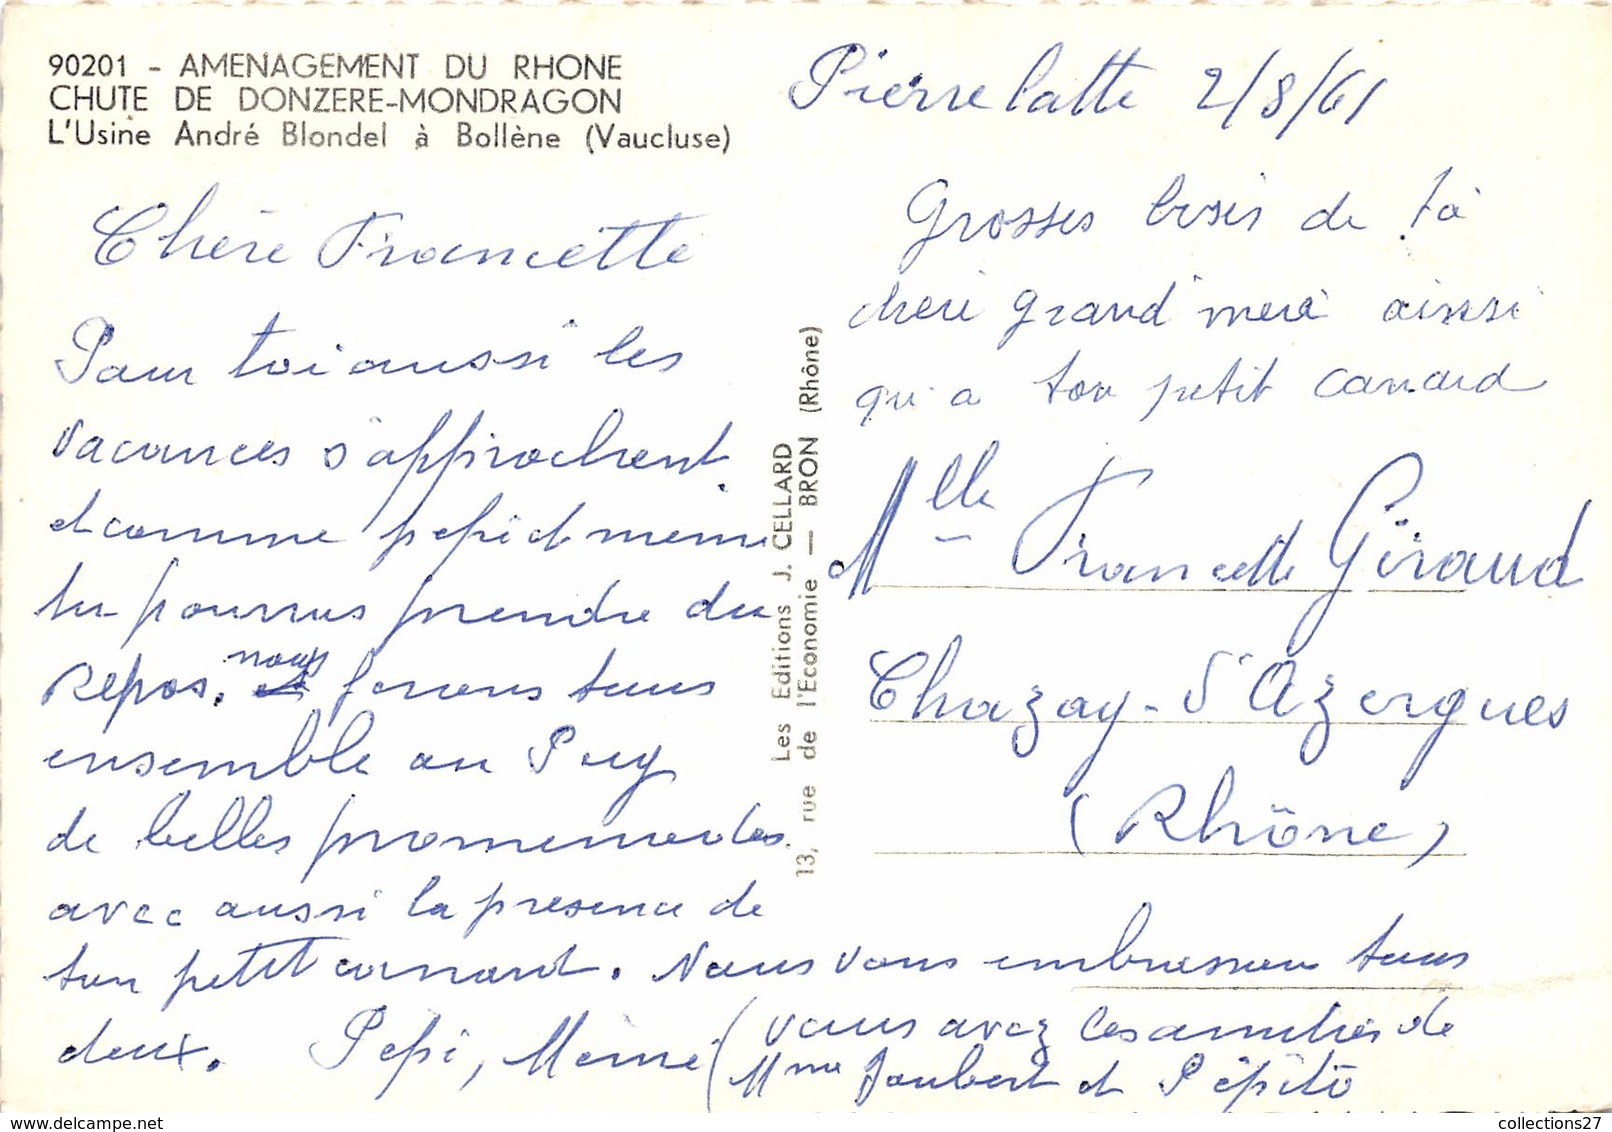 90201 - AMENAGEMENT DU RHONE
CHUTE DE DONZERE-MONDRAGON
L'Usine André Blondel à Bollène (Vaucluse)
Chère Francette
Pour toi aussi les
vacances s'approchent
et comme pepi et memé
tu pourras prendre du
repos. nous ferons tous
ensemble au Puy
de belles promenades.
avec aussi la presence de
ton petit canard. Nous vous embrassons tous
deux. Pepi, Mémé
(vous avez les amitiés de
Mme Joubert et Pépito
Les Editions J. CELLARD
13, rue de l'Economie — BRON (Rhône)
Pierrelatte 2/8/61
Grosses bises de ta
chere grand'mere ainsi
qu'a ton petit canard
Mlle Francette Giraud
Chazay-d'Azergues
(Rhône)
collections27